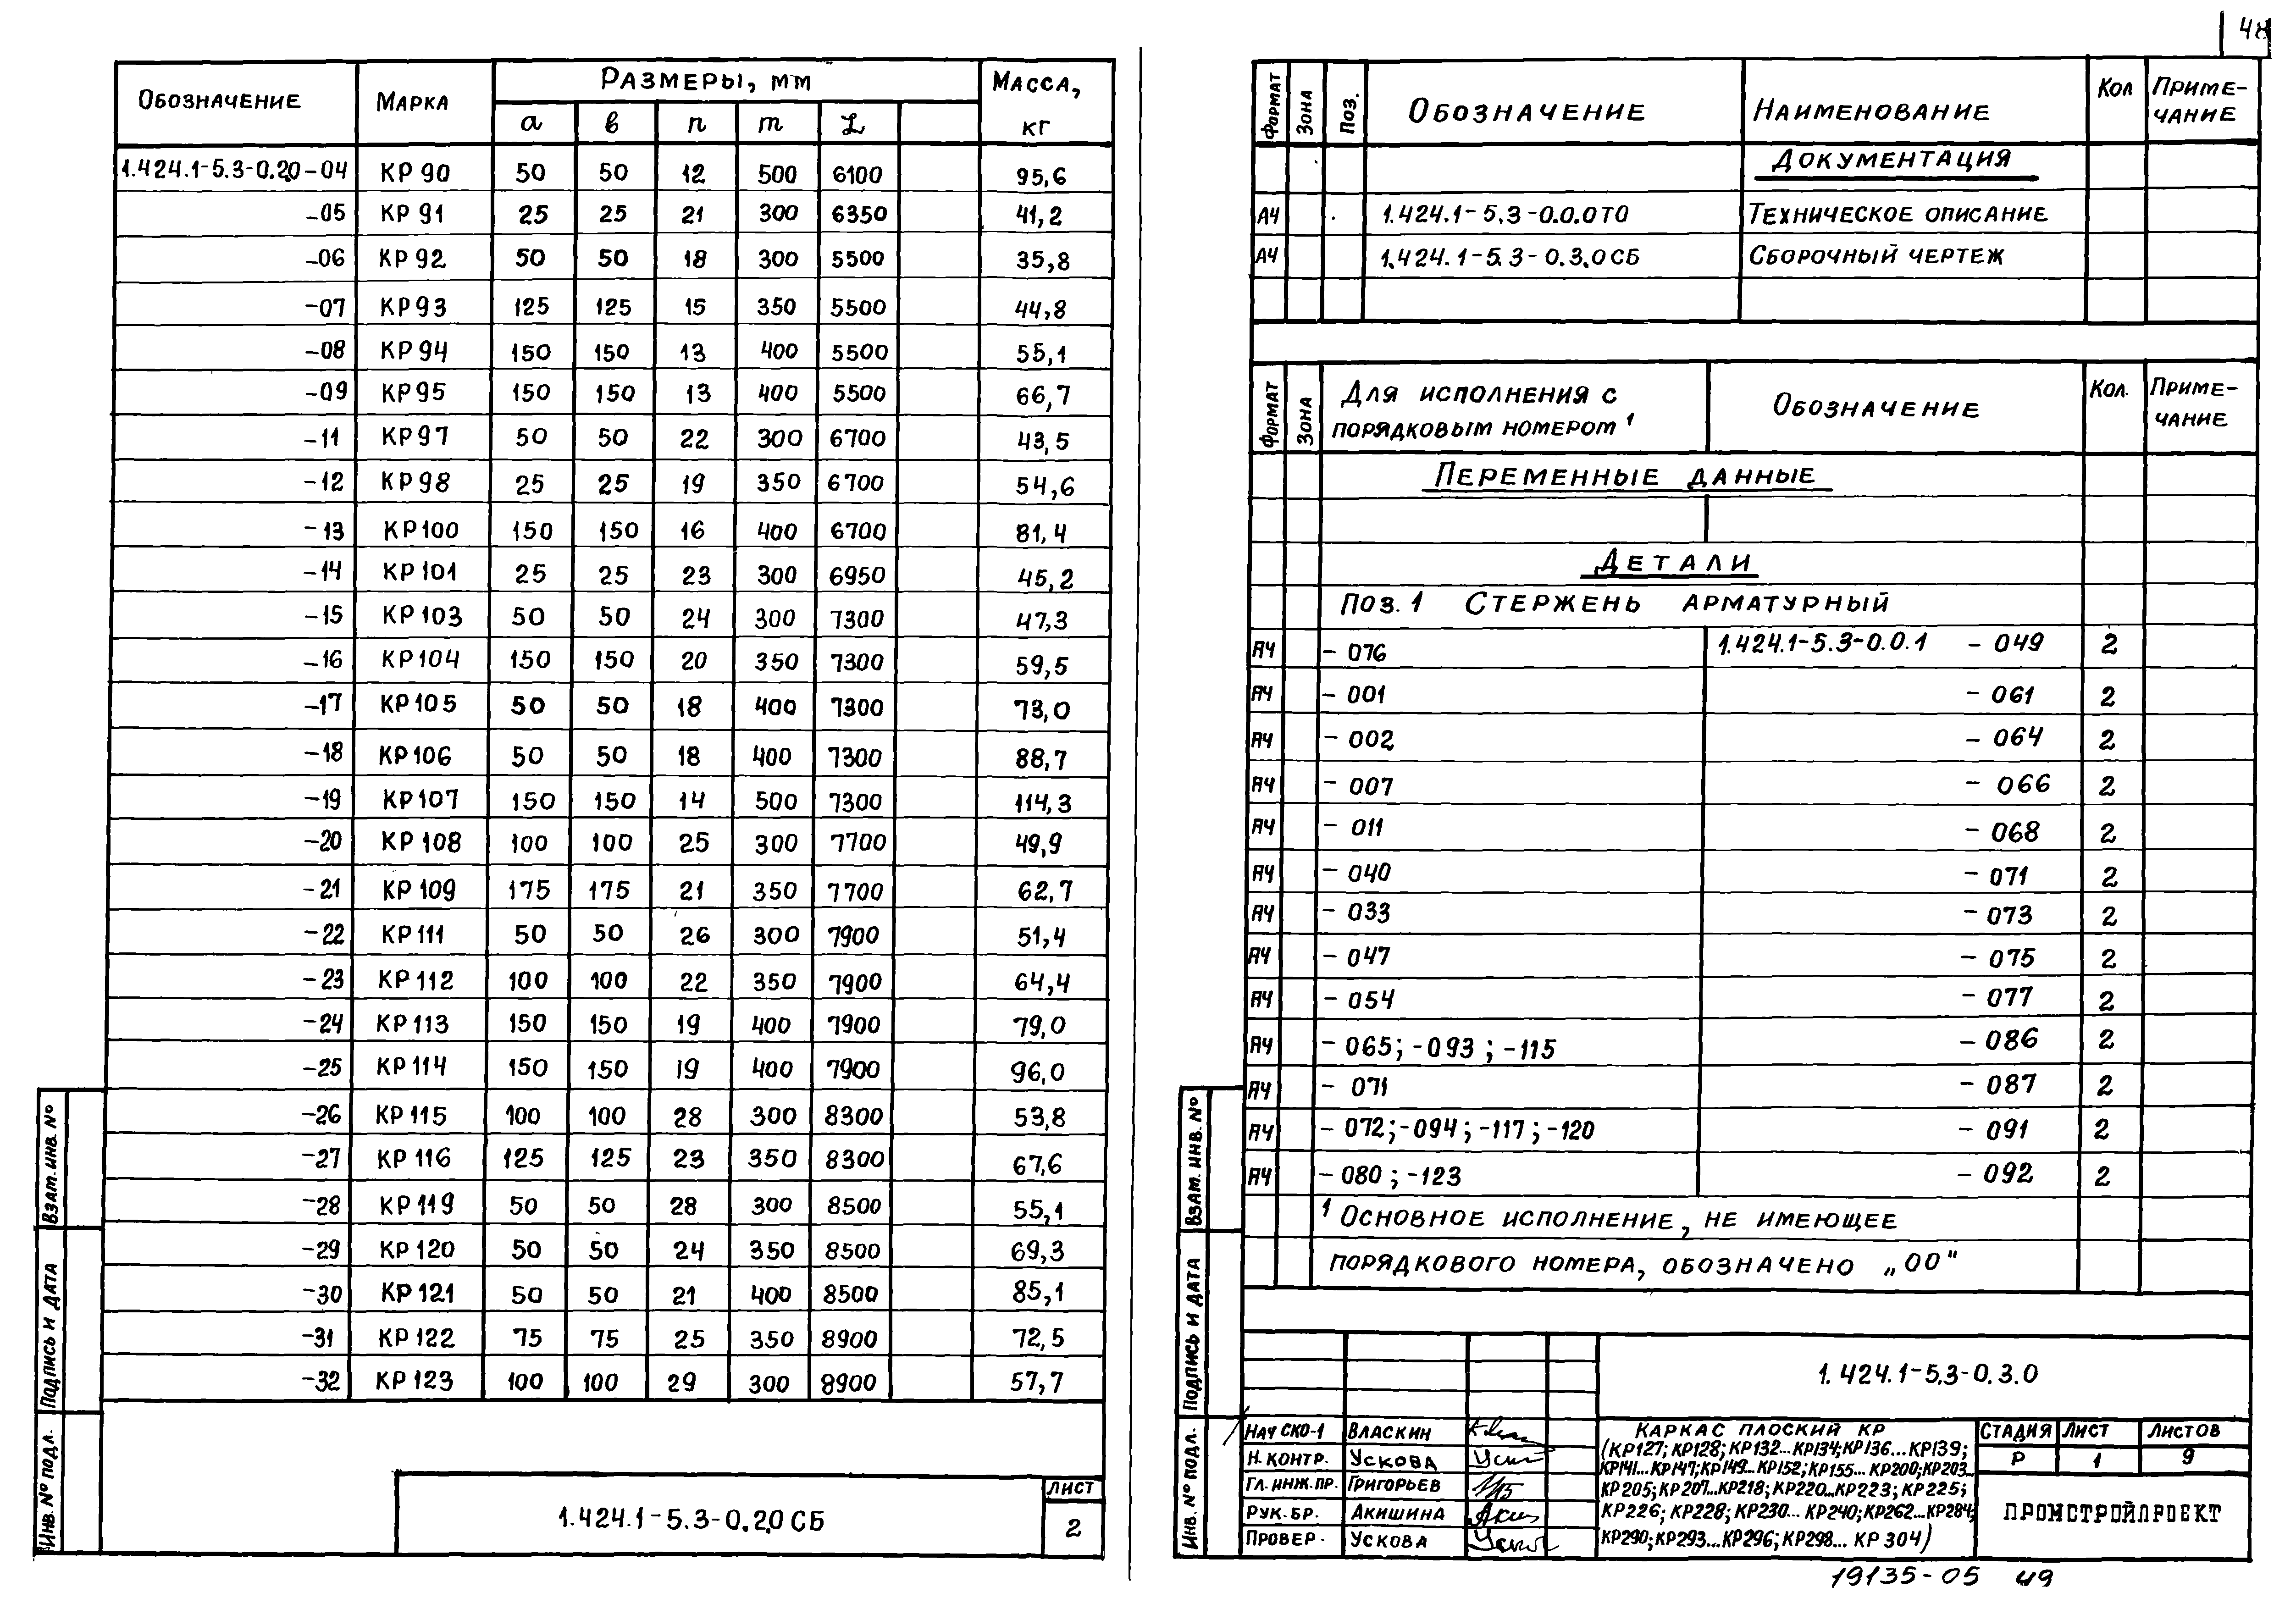 48
ОБОЗНАЧЕНИЕ МАРКА РАЗМЕРЫ, ММ МАССА, КГ
а в п т L
1.424.1-5.3-0.2.0-04 КР 90 50 50 12 500 6100 95,6
-05 КР 91 25 25 21 300 6350 41,2
-06 КР 92 50 50 18 300 5500 35,8
-07 КР 93 125 125 15 350 5500 44,8
-08 КР 94 150 150 13 400 5500 55,1
-09 КР 95 150 150 13 400 5500 66,7
-11 КР 97 50 50 22 300 6700 43,5
-12 КР 98 25 25 19 350 6700 54,6
-13 КР 100 150 150 16 400 6700 81,4
-14 КР 101 25 25 23 300 6950 45,2
-15 КР 103 50 50 24 300 7300 47,3
-16 КР 104 150 150 20 350 7300 59,5
-17 КР 105 50 50 18 400 7300 73,0
-18 КР 106 50 50 18 400 7300 88,7
-19 КР 107 150 150 14 500 7300 114,3
-20 КР 108 100 100 25 300 7700 49,9
-21 КР 109 175 175 21 350 7700 62,7
-22 КР 111 50 50 26 300 7900 51,4
-23 КР 112 100 100 22 350 7900 64,4
-24 КР 113 150 150 19 400 7900 79,0
-25 КР 114 150 150 19 400 7900 96,0
-26 КР 115 100 100 28 300 8300 53,8
-27 КР 116 125 125 23 350 8300 67,6
-28 КР 119 50 50 28 300 8500 55,1
-29 КР 120 50 50 24 350 8500 69,3
-30 КР 121 50 50 21 400 8500 85,1
-31 КР 122 75 75 25 350 8900 72,5
-32 КР 123 100 100 29 300 8900 57,7
ВЗАМ. ИНВ. №
ПОДПИСЬ И ДАТА
ИНВ. № ПОДЛ.
1.424.1-5.3-0.2.0 СБ
ЛИСТ
2
ФОРМАТ ЗОНА ПОЗ. ОБОЗНАЧЕНИЕ НАИМЕНОВАНИЕ КОЛ ПРИМЕ-
ЧАНИЕ
ДОКУМЕНТАЦИЯ
А4 1.424.1-5.3-0.0.0 ТО ТЕХНИЧЕСКОЕ ОПИСАНИЕ
А4 1.424.1-5.3-0.3.0 СБ СБОРОЧНЫЙ ЧЕРТЕЖ
ФОРМАТ ЗОНА ДЛЯ ИСПОЛНЕНИЯ С ПОРЯДКОВЫМ НОМЕРОМ¹ ОБОЗНАЧЕНИЕ КОЛ. ПРИМЕ-
ЧАНИЕ
ПЕРЕМЕННЫЕ ДАННЫЕ
ДЕТАЛИ
ПОЗ. 1 СТЕРЖЕНЬ АРМАТУРНЫЙ
А4 - 076 1.424.1-5.3-0.0.1 - 049 2
А4 - 001 - 061 2
А4 - 002 - 064 2
А4 - 007 - 066 2
А4 - 011 - 068 2
А4 - 040 - 071 2
А4 - 033 - 073 2
А4 - 047 - 075 2
А4 - 054 - 077 2
А4 - 065; -093; -115 - 086 2
А4 - 071 - 087 2
А4 - 072; -094; -117; -120 - 091 2
А4 - 080; -123 - 092 2
¹ ОСНОВНОЕ ИСПОЛНЕНИЕ, НЕ ИМЕЮЩЕЕ
ПОРЯДКОВОГО НОМЕРА, ОБОЗНАЧЕНО „00"
ВЗАМ. ИНВ. №
ПОДПИСЬ И ДАТА
ИНВ. № ПОДЛ.
1.424.1-5.3-0.3.0
НАЧ СКО-1 ВЛАСКИН
Н. КОНТР. УСКОВА
ГЛ. ИНЖ. ПР. ГРИГОРЬЕВ
РУК. БР. АКИШИНА
ПРОВЕР. УСКОВА
КАРКАС ПЛОСКИЙ КР
(КР127; КР128; КР132...КР134; КР136...КР139;
КР141...КР147; КР149...КР152; КР155...КР200; КР203...
КР205; КР207...КР218; КР220...КР223; КР225;
КР226; КР228; КР230...КР240; КР262...КР284;
КР290; КР293...КР296; КР298...КР304)
СТАДИЯ ЛИСТ ЛИСТОВ
Р 1 9
ПРОМСТРОЙПРОЕКТ
19135-05 49